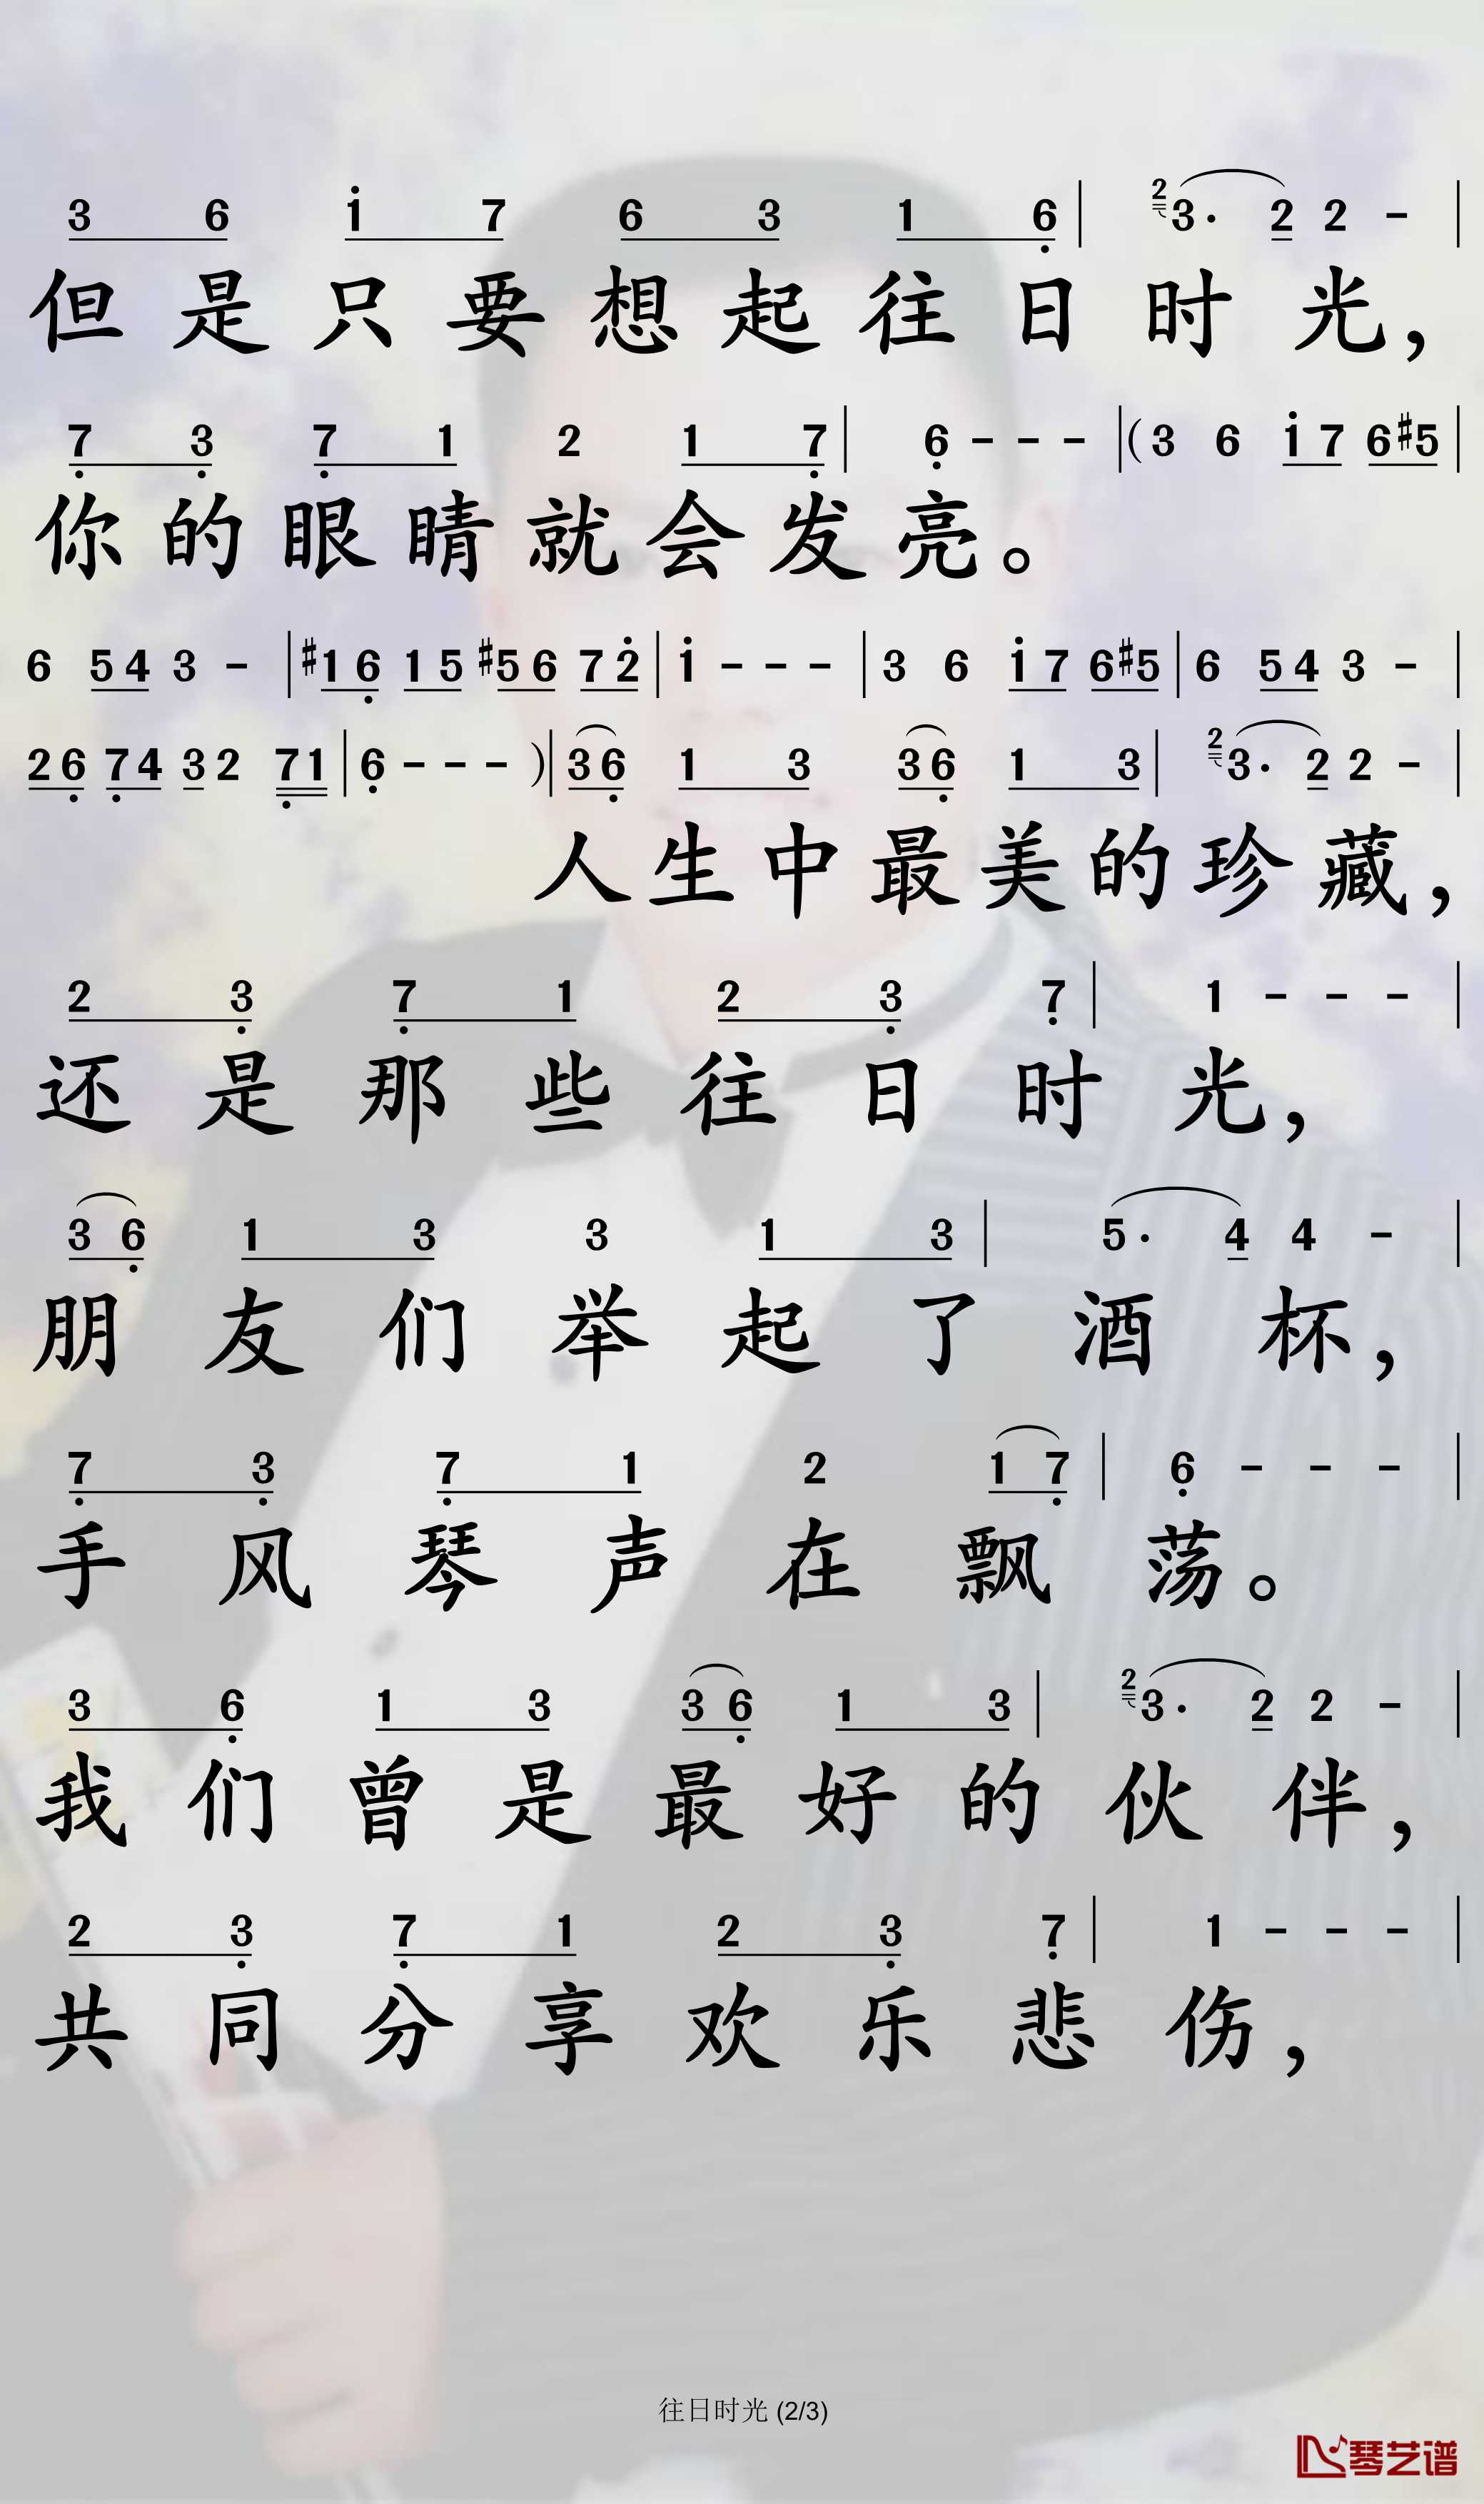 3 6 i 7 6 3 1 6 | 2 3· 2 2 - |
但是只要想起往日时光，
7 3 7 1 2 1 7 | 6 - - - | (3 6 i 7 6 #5 |
你的眼睛就会发亮。
6 5 4 3 - | #1 6 1 5 #5 6 7 2 | i - - - | 3 6 i 7 6 #5 | 6 5 4 3 - |
2 6 7 4 3 2 7 1 | 6 - - - ) | 3 6 1 3 3 6 1 3 | 2 3· 2 2 - |
人生中最美的珍藏，
2 3 7 1 2 3 7 | 1 - - - |
还是那些往日时光，
3 6 1 3 3 1 3 | 5· 4 4 - |
朋友们举起了酒杯，
7 3 7 1 2 1 7 | 6 - - - |
手风琴声在飘荡。
3 6 1 3 3 6 1 3 | 2 3· 2 2 - |
我们曾是最好的伙伴，
2 3 7 1 2 3 7 | 1 - - - |
共同分享欢乐悲伤，
往日时光 (2/3)
琴艺谱